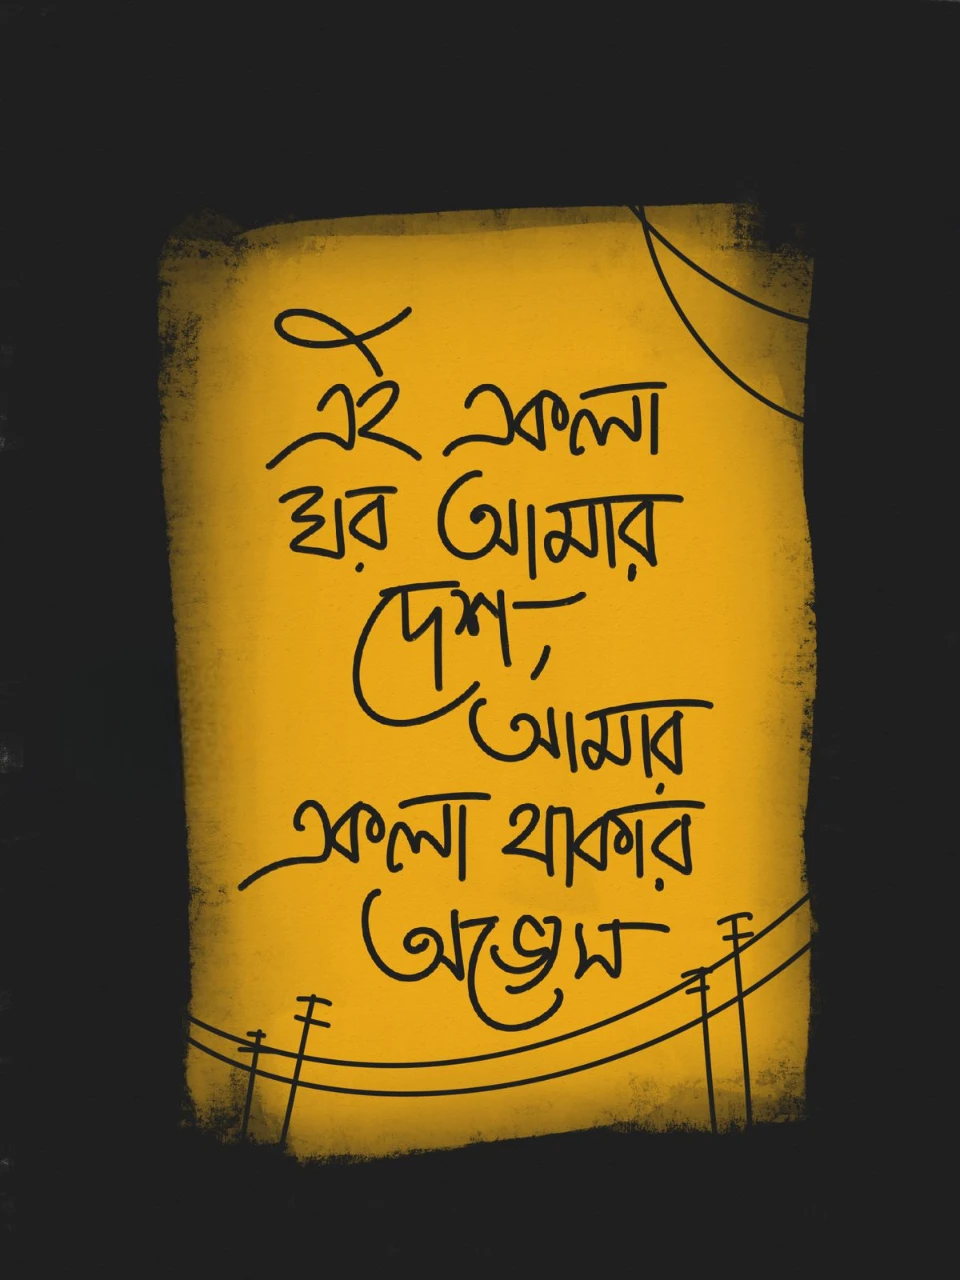 এই একলা
ঘর আমার
দেশ,
আমার
একলা থাকার
অভ্যেস